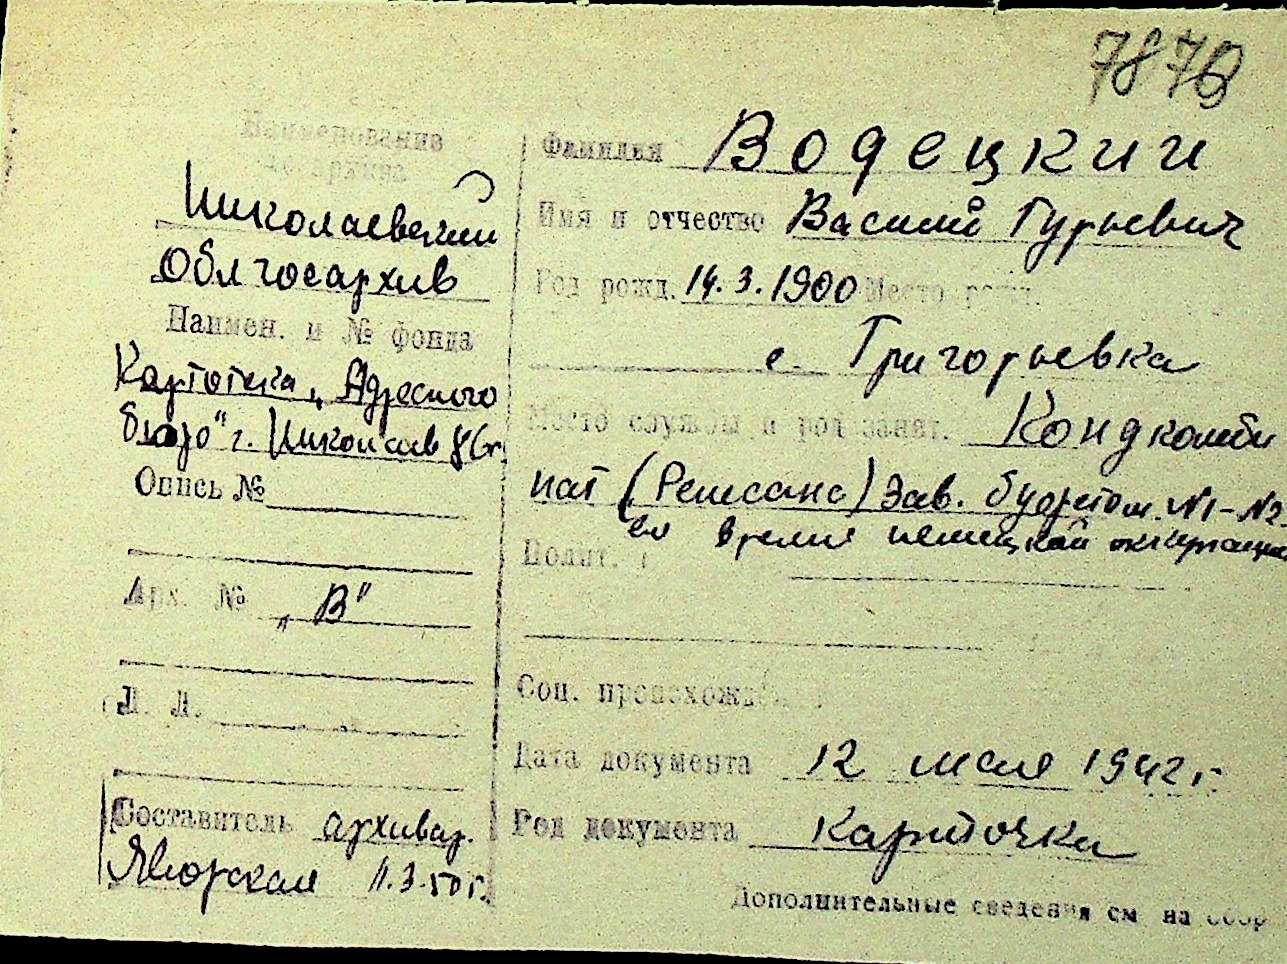 787
Наименование
госархива
Николаевский
Облгосархив
Наимен. и № фонда
Картотека „Адресного
бюро" г. Николаев
Опись №
Арх. № „В"
Л. Л.
Составитель архивар.
Яворская 11.3.50 г.
Фамилия Водецкий
Имя и отчество Василий Гурьевич
Год рожд. 14.3.1900 Место рожд.
с. Григорьевка
Место службы и род занят. Кондкомби
нат Зав. буфетом №1-№2
во время немецкой оккупации
Полит.
Соц. происхожд
Дата документа 12 мая 1942 г.
Род документа карточка
Дополнительные сведения см на обор